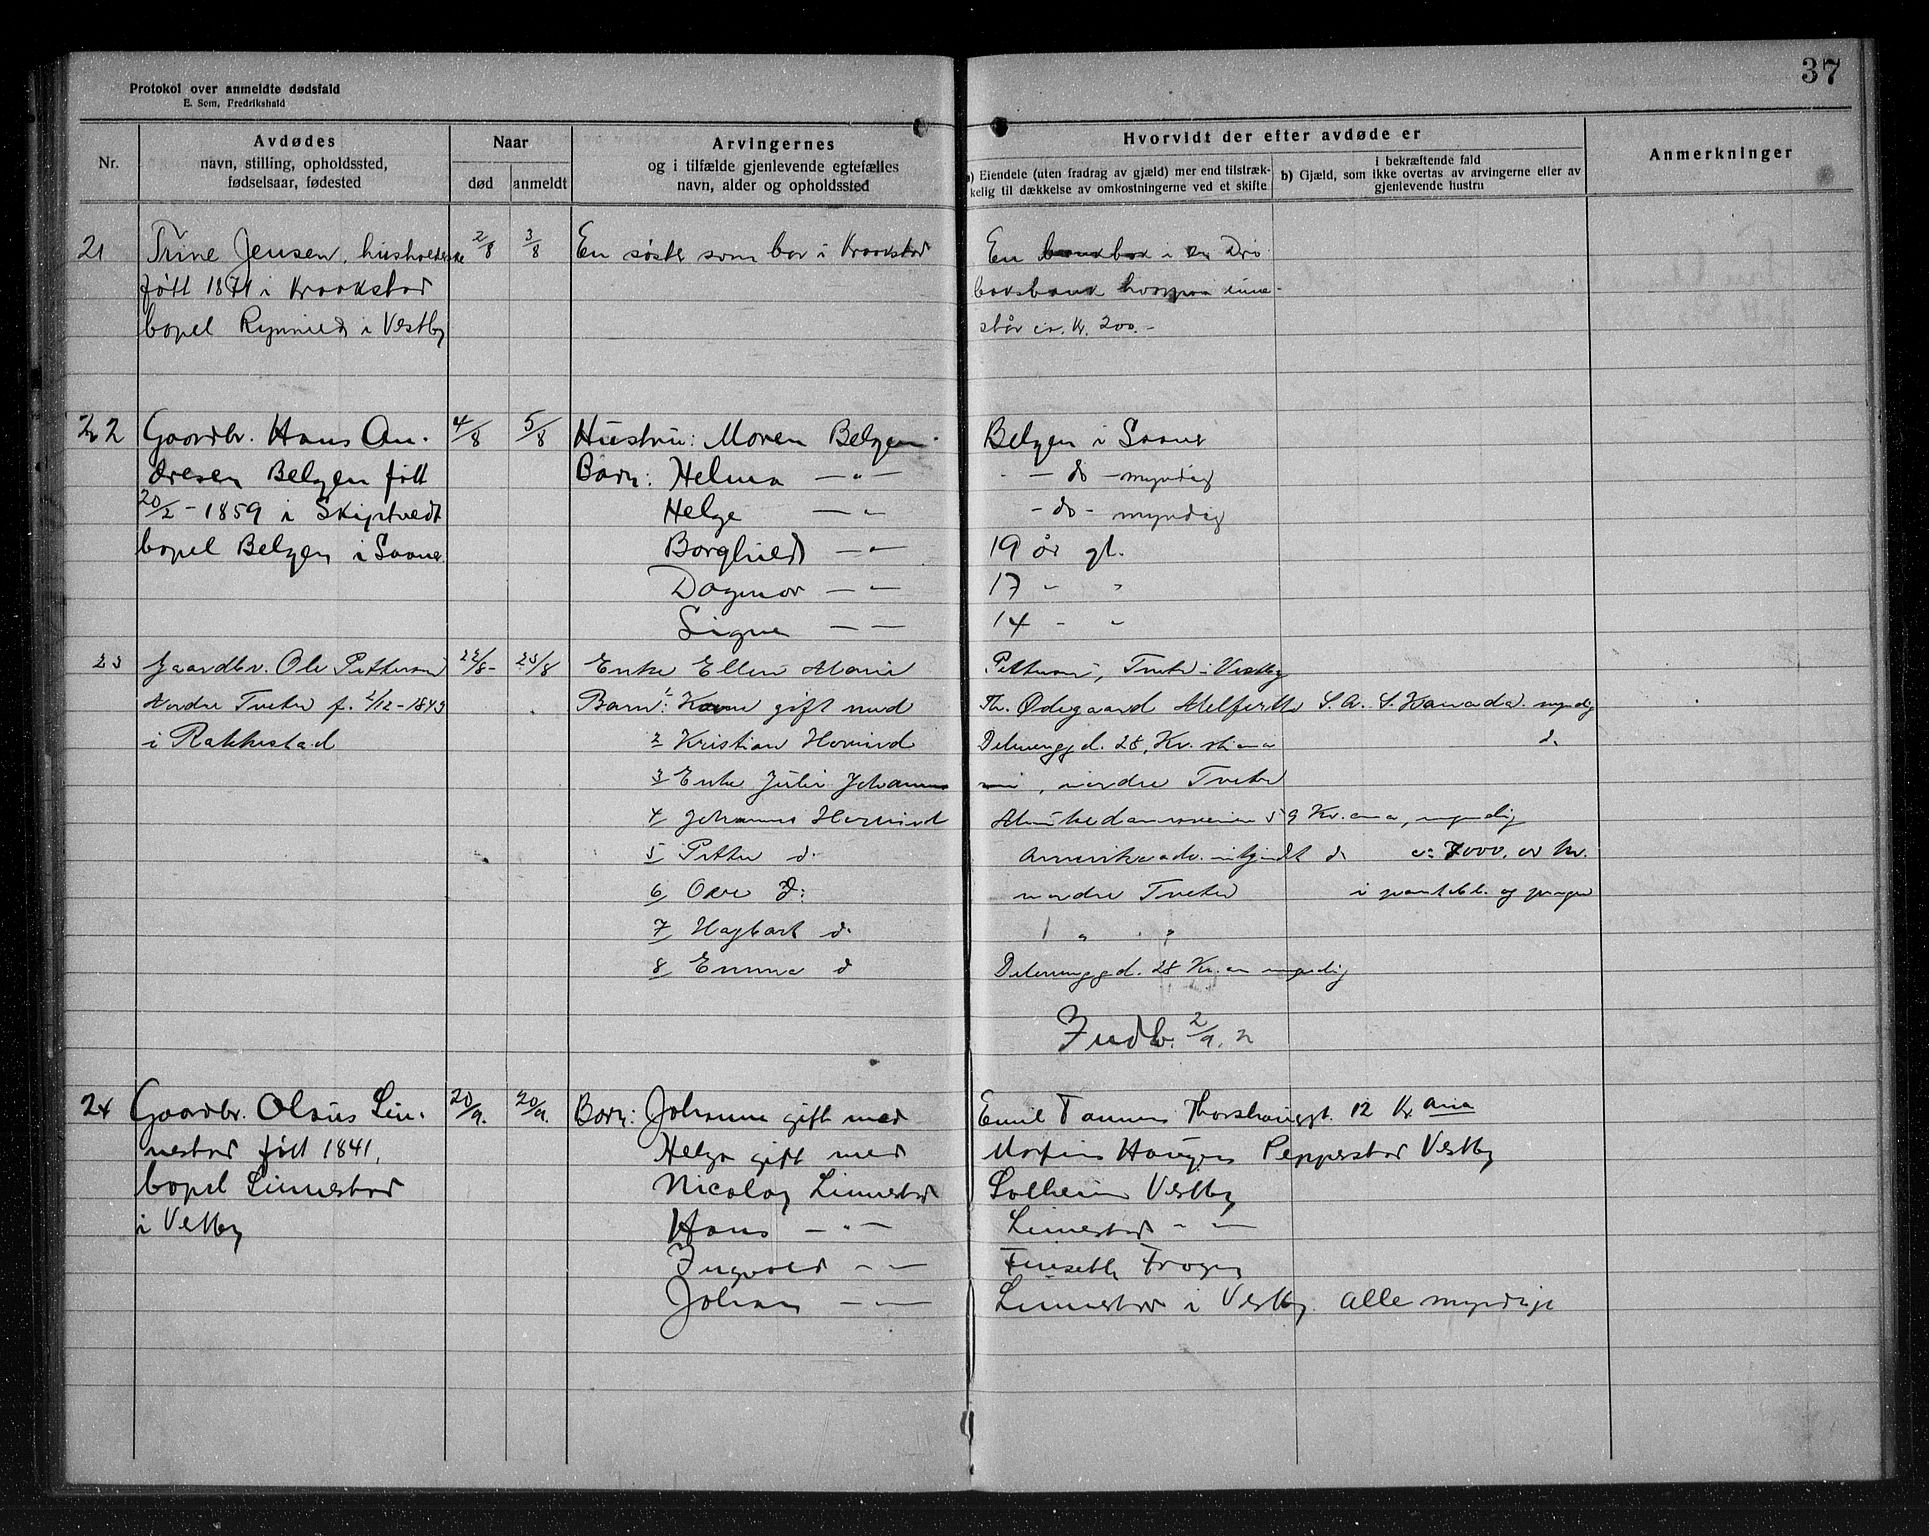 37
Protokol over anmeldte dødsfald
E. Sem, Fredrikshald
Nr.
Avdødes
navn, stilling, opholdssted,
fødselsaar, fødested
Naar
død
anmeldt
Arvingernes
og i tilfælde gjenlevende egtefælles
navn, alder og opholdssted
Hvorvidt der efter avdøde er
a) Eiendele (uten fradrag av gjæld) mer end tilstræk-
kelig til dækkelse av omkostningerne ved et skifte
i bekræftende fald
b) Gjæld, som ikke overtas av arvingerne eller av
gjenlevende hustru
Anmerkninger
21 Trine Jensen, husholderske 2/8 3/8 En søster som bor i Kraakstad En bankbok i Drø-
født 1871 i Kraakstad baksbank hvorpaa inne-
bopel i Vestby står ca. Kr. 200.-
22 Gaardbr. Hans An- 4/8 5/8 Hustru: Maren Belgen Belgen i Saaner
dresen Belgen født Barn: Helma — " — - do - myndig
20/2 - 1859 i Skiptvedt Helge — " — - do - myndig
bopel Belgen i Saaner Borghild — " — 19 år gl.
Dagmar — " — 17 " "
Signe — — 14 " "
23 Gaardbr. Ole Pettersen 22/8 - 25/8 Enke Ellen Marie Pettersen, Tveter i Vestby
Nordre Tveter f. 2/12 - 1849 Barn: 1 gift med Th. Ødegaard S. A. Kanada myndig
i Rakkestad 2 Kristian 28, Kr.stiania d.
3 Enke Julie , nordre Tveter
4 Johannes 59 Kr.ania, myndig
5 Petter d. Amerika d. 7000,00 kr.
6 d: nordre Tveter i og penger
7 Hagbart d. " "
8 Emma d 28 Kr.an myndig
Indb. 2/9. 
24 Gaardbr. Olaus Lin- 20/9. 20/9. Barn: Johanne gift med Emil 12 Kr.ania
nestad født 1841, Helga gift med Haugen Pepperstad Vestby
bopel Linnestad Nicolay Linnestad Solheim Vestby
i Vestby Hans — " — Linnestad — " —
Ingvald — " — Finseth Frogn
Johan — " — Linnestad i Vestby. Alle myndige